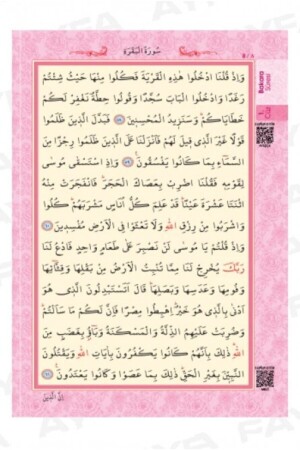 سُورَةُ الْبَقَرَةِ
٨ / 8
Bakara
Suresi
وَاِذْ قُلْنَا ادْخُلُوا هٰذِهِ الْقَرْيَةَ فَكُلُوا مِنْهَا حَيْثُ شِئْتُمْ
رَغَدًا وَادْخُلُوا الْبَابَ سُجَّدًا وَقُولُوا حِطَّةٌ نَغْفِرْ لَكُمْ
خَطَايَاكُمْ وَسَنَزِيدُ الْمُحْسِنِينَ ﴿٥٨﴾ فَبَدَّلَ الَّذِينَ ظَلَمُوا
قَوْلًا غَيْرَ الَّذِي قِيلَ لَهُمْ فَاَنْزَلْنَا عَلَى الَّذِينَ ظَلَمُوا رِجْزًا مِنَ
السَّمَاءِ بِمَا كَانُوا يَفْسُقُونَ ﴿٥٩﴾ وَاِذِ اسْتَسْقٰى مُوسٰى
لِقَوْمِهِ فَقُلْنَا اضْرِبْ بِعَصَاكَ الْحَجَرَ فَانْفَجَرَتْ مِنْهُ
اثْنَتَا عَشْرَةَ عَيْنًا قَدْ عَلِمَ كُلُّ اُنَاسٍ مَشْرَبَهُمْ كُلُوا
وَاشْرَبُوا مِنْ رِزْقِ اللّٰهِ وَلَا تَعْثَوْا فِي الْاَرْضِ مُفْسِدِينَ ﴿٦٠﴾
وَاِذْ قُلْتُمْ يَا مُوسٰى لَنْ نَصْبِرَ عَلٰى طَعَامٍ وَاحِدٍ فَادْعُ لَنَا
رَبَّكَ يُخْرِجْ لَنَا مِمَّا تُنْبِتُ الْاَرْضُ مِنْ بَقْلِهَا وَقِثَّائِهَا
وَفُومِهَا وَعَدَسِهَا وَبَصَلِهَا قَالَ اَتَسْتَبْدِلُونَ الَّذِي هُوَ
اَدْنٰى بِالَّذِي هُوَ خَيْرٌ اِهْبِطُوا مِصْرًا فَاِنَّ لَكُمْ مَا سَاَلْتُمْ
وَضُرِبَتْ عَلَيْهِمُ الذِّلَّةُ وَالْمَسْكَنَةُ وَبَاؤُ بِغَضَبٍ مِنَ
اللّٰهِ ذٰلِكَ بِاَنَّهُمْ كَانُوا يَكْفُرُونَ بِاٰيَاتِ اللّٰهِ وَيَقْتُلُونَ
النَّبِيّٖنَ بِغَيْرِ الْحَقِّ ذٰلِكَ بِمَا عَصَوْا وَكَانُوا يَعْتَدُونَ ﴿٦١﴾
اِنَّ الَّذِينَ